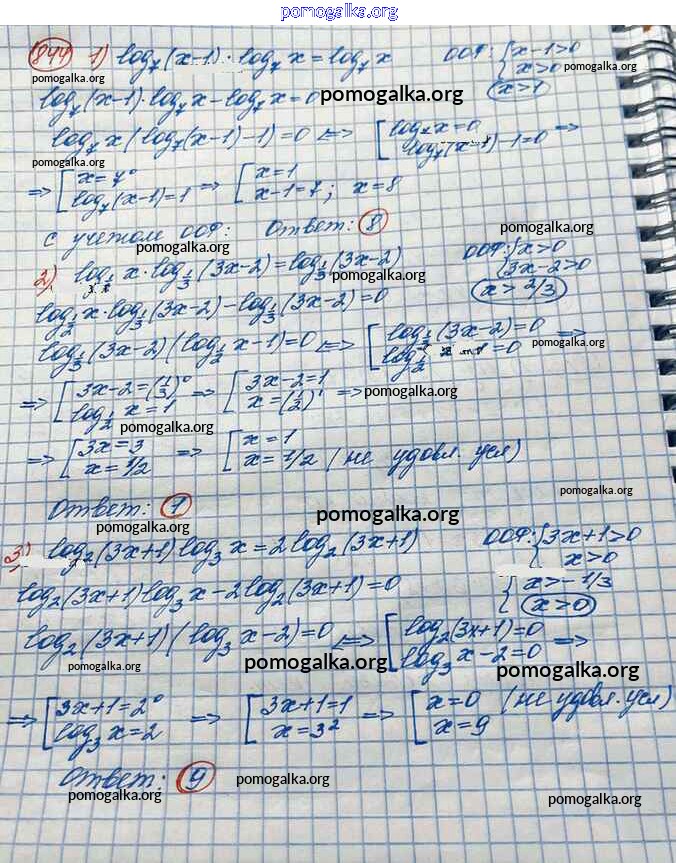 pomogalka.org
844 1) log₇(x-1)·log₇x=log₇x ООФ: {x-1>0
pomogalka.org {x>0 pomogalka.org
x>1
log₇(x-1)·log₇x-log₇x=0 pomogalka.org
log₇x(log₇(x-1)-1)=0 <=> [log₇x=0 =>
pomogalka.org [log₇(x-1)-1=0
=> [x=7⁰ => [x=1
[log₇(x-1)=1 [x-1=7; x=8
с учетом ООФ: Ответ: 8 pomogalka.org
pomogalka.org
2) log½x·log⅓(3x-2)=log⅓(3x-2) ООФ: {x>0
pomogalka.org {3x-2>0
x>2/3
log½x·log⅓(3x-2)-log⅓(3x-2)=0
log⅓(3x-2)(log½x-1)=0 <=> [log⅓(3x-2)=0 =>
pomogalka.org
=> [3x-2=(1/3)⁰ => [3x-2=1
[log½x=1 [x=(1/2)¹ => pomogalka.org
pomogalka.org
=> [3x=3 => [x=1
[x=1/2 [x=1/2 (не удовл. усл)
pomogalka.org
Ответ: 1 pomogalka.org
pomogalka.org
3) log₂(3x+1)log₃x=2log₂(3x+1) ООФ: {3x+1>0
{x>0
log₂(3x+1)log₃x-2log₂(3x+1)=0 {x>-1/3
{x>0
log₂(3x+1)(log₃x-2)=0 <=> [log₂(3x+1)=0 =>
[log₃x-2=0
pomogalka.org pomogalka.org pomogalka.org
=> [3x+1=2⁰ => [3x+1=1 => [x=0 (не удовл. усл)
[log₃x=2 [x=3² [x=9
Ответ: 9 pomogalka.org
pomogalka.org pomogalka.org